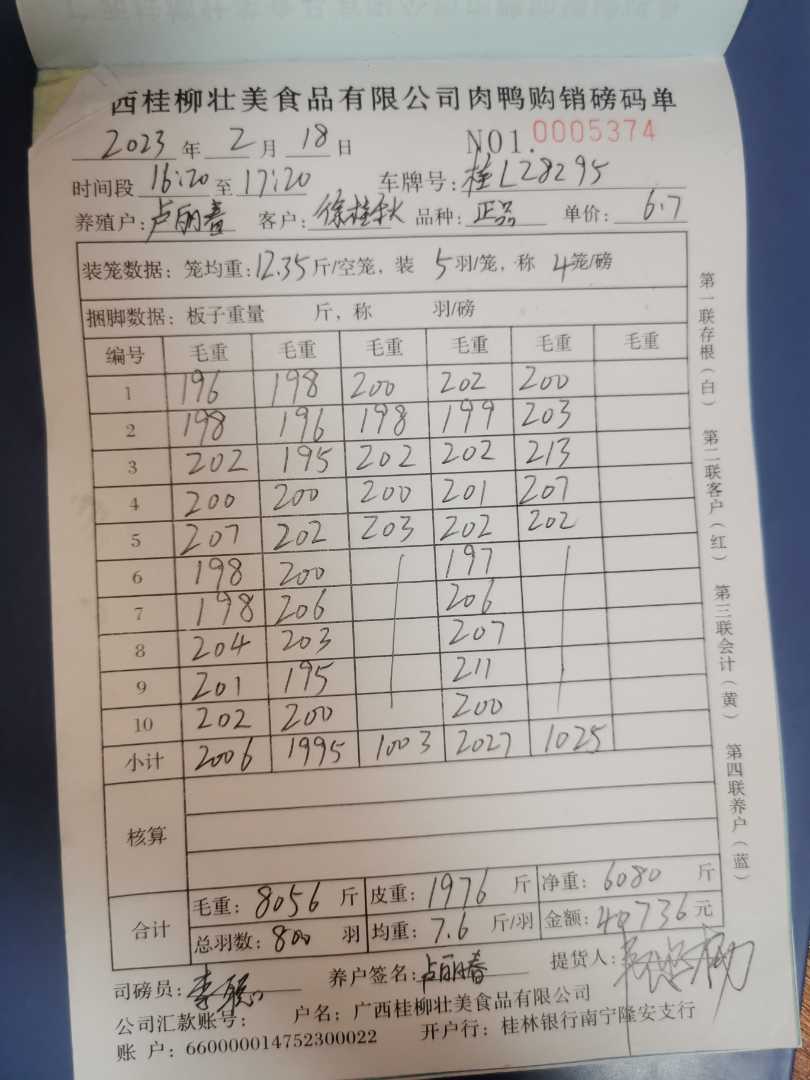 西桂柳壮美食品有限公司肉鸭购销磅码单
2023 年 2 月 18 日 NO1. 0005374
时间段 16:20 至 17:20 车牌号: 桂L28295
养殖户: 卢丽春 客户: 徐桂秋 品种: 正品 单价: 6.7
装笼数据: 笼均重: 12.35 斤/空笼, 装 5 羽/笼, 称 4 笼/磅
捆脚数据: 板子重量 斤, 称 羽/磅
编号 毛重 毛重 毛重 毛重 毛重 毛重
1 196 198 200 202 200
2 198 196 198 199 203
3 202 195 202 202 213
4 200 200 200 201 207
5 207 202 203 202 202
6 198 200 197
7 198 206 206
8 204 203 207
9 201 195 211
10 202 200 200
小计 2006 1995 1003 2027 1025
核算
合计 毛重: 8056 斤 皮重: 1976 斤 净重: 6080 斤
总羽数: 800 羽 均重: 7.6 斤/羽 金额: 40736 元
司磅员: 养户签名: 卢丽春 提货人:
公司汇款账号: 户名: 广西桂柳壮美食品有限公司
账 户: 660000014752300022 开户行: 桂林银行南宁隆安支行
第一联存根(白) 第二联客户(红) 第三联会计(黄) 第四联养户(蓝)